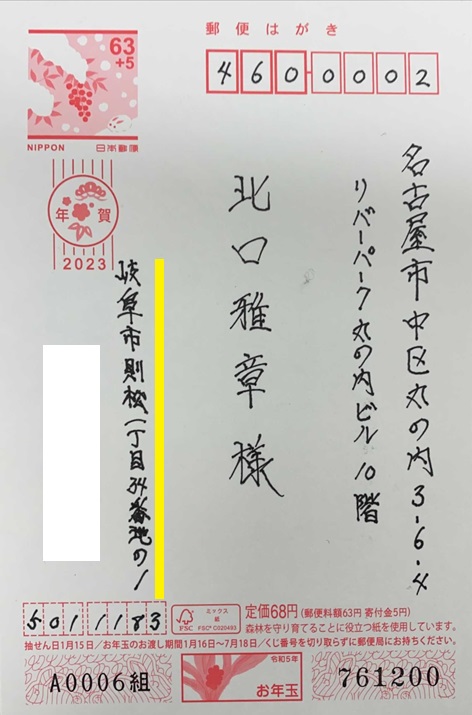 郵便はがき
4600002
63
+5
NIPPON 日本郵便
年賀
2023
名古屋市中区丸の内3-6-4
リバーパーク丸の内ビル10階
北口雅章様
岐阜市則松一丁目34番地の1
5011183
FSC
ミックス
紙
FSC® C020493
定価68円(郵便料額63円 寄付金5円)
森林を守り育てることに役立つ紙を使用しています。
抽せん日1月15日/お年玉のお渡し期間1月16日〜7月18日/くじ番号を切り取らずに郵便局にお持ちください。
A0006組
令和5年
お年玉
761200